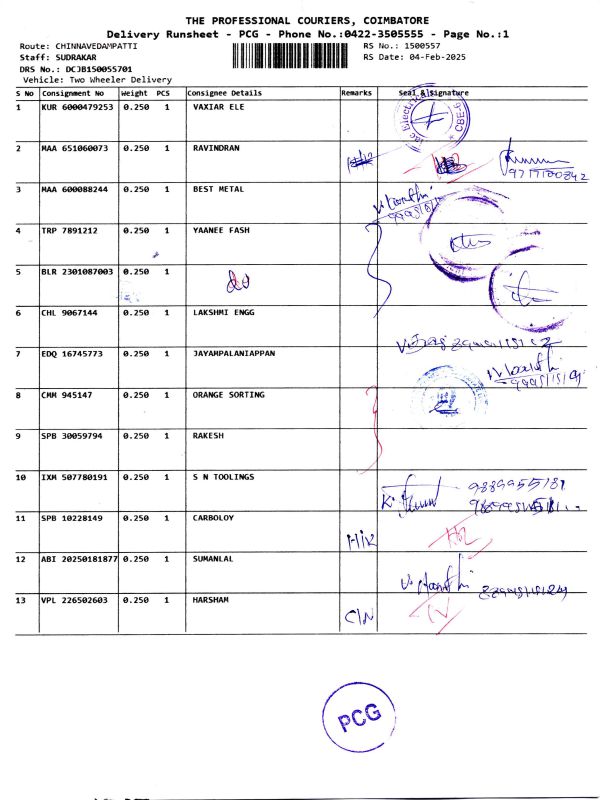 THE PROFESSIONAL COURIERS, COIMBATORE
Delivery Runsheet - PCG - Phone No.:0422-3505555 - Page No.:1
Route: CHINNAVEDAMPATTI RS No.: 1500557
Staff: SUDRAKAR RS Date: 04-Feb-2025
DRS No.: DCJB150055701
Vehicle: Two Wheeler Delivery
S No Consignment No Weight PCS Consignee Details Remarks Seal & Signature
1 KUR 6000479253 0.250 1 VAXIAR ELE
2 MAA 651060073 0.250 1 RAVINDRAN
9717100842
3 MAA 600088244 0.250 1 BEST METAL
4 TRP 7891212 0.250 1 YAANEE FASH
5 BLR 2301087003 0.250 1
6 CHL 9067144 0.250 1 LAKSHMI ENGG
7 EDQ 16745773 0.250 1 JAYAMPALANIAPPAN
8 CMM 945147 0.250 1 ORANGE SORTING
9 SPB 30059794 0.250 1 RAKESH
10 IXM 507780191 0.250 1 S N TOOLINGS
9889955181
11 SPB 10228149 0.250 1 CARBOLOY
12 ABI 20250181877 0.250 1 SUMANLAL
13 VPL 226502603 0.250 1 HARSHAM
PCG